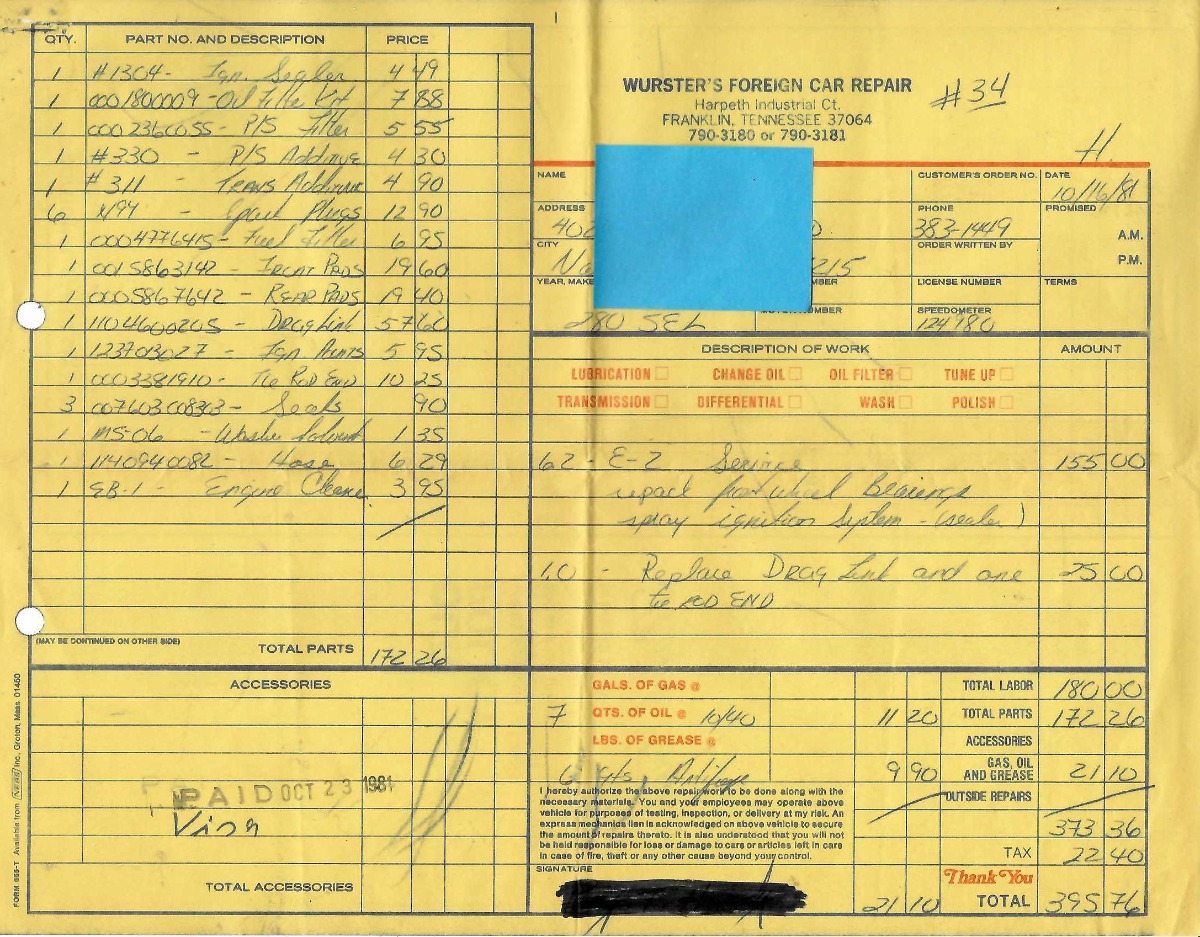 QTY. PART NO. AND DESCRIPTION PRICE
1 #1304- Ign. Sealer 4 49
1 0001800009-Oil Filter Kit 7 88
1 0002360055- P/S Filter 5 55
1 #330 - P/S Additive 4 30
1 #311 - Trans Additive 4 90
6 N9Y - Spark Plugs 12 90
1 0004776415- Fuel Filter 6 95
1 0015863142 - Front Pads 19 60
1 0005867642 - Rear Pads 19 40
1 1104600205 - Drag Link 57 60
1 1237013027 - Ign Points 5 95
1 0003381910- Tie Rod End 10 25
3 007603008303- Seals 90
1 MS-06 - Washer Solvent 1 35
1 1140940082 - Hose 6 29
1 GB-1 - Engine Cleaner 3 95
(MAY BE CONTINUED ON OTHER SIDE)
TOTAL PARTS 172 26
ACCESSORIES
PAID OCT 23 1981
Visa
TOTAL ACCESSORIES
FORM 655-T Available from Inc., Groton, Mass. 01450
WURSTER'S FOREIGN CAR REPAIR
Harpeth Industrial Ct.
FRANKLIN, TENNESSEE 37064
790-3180 or 790-3181
#34
H
NAME
CUSTOMER'S ORDER NO.
DATE
10/16/81
ADDRESS
402
PHONE
383-1449
PROMISED
A.M.
P.M.
CITY
Na
215
ORDER WRITTEN BY
YEAR, MAKE
280 SEL
LICENSE NUMBER
TERMS
NUMBER
SPEEDOMETER
124780
DESCRIPTION OF WORK AMOUNT
LUBRICATION CHANGE OIL OIL FILTER TUNE UP
TRANSMISSION DIFFERENTIAL WASH POLISH
6.2 - E-2 Service 155 00
repack front wheel Bearings
spray ignition System - (sealer)
1.0 - Replace Drag Link and one 25 00
tie ROD END
GALS. OF GAS @ TOTAL LABOR 180 00
7 QTS. OF OIL @ 10/40 11 20 TOTAL PARTS 172 26
LBS. OF GREASE @ ACCESSORIES
6 qts Antifreeze 9 90 GAS, OIL AND GREASE 21 10
I hereby authorize the above repair work to be done along with the
necessary materials. You and your employees may operate above
vehicle for purposes of testing, inspection, or delivery at my risk. An
express mechanics lien is acknowledged on above vehicle to secure
the amount of repairs thereto. It is also understood that you will not
be held responsible for loss or damage to cars or articles left in cars
in case of fire, theft or any other cause beyond your control.
OUTSIDE REPAIRS
373 36
TAX 22 40
SIGNATURE
Thank You
21 10 TOTAL 395 76